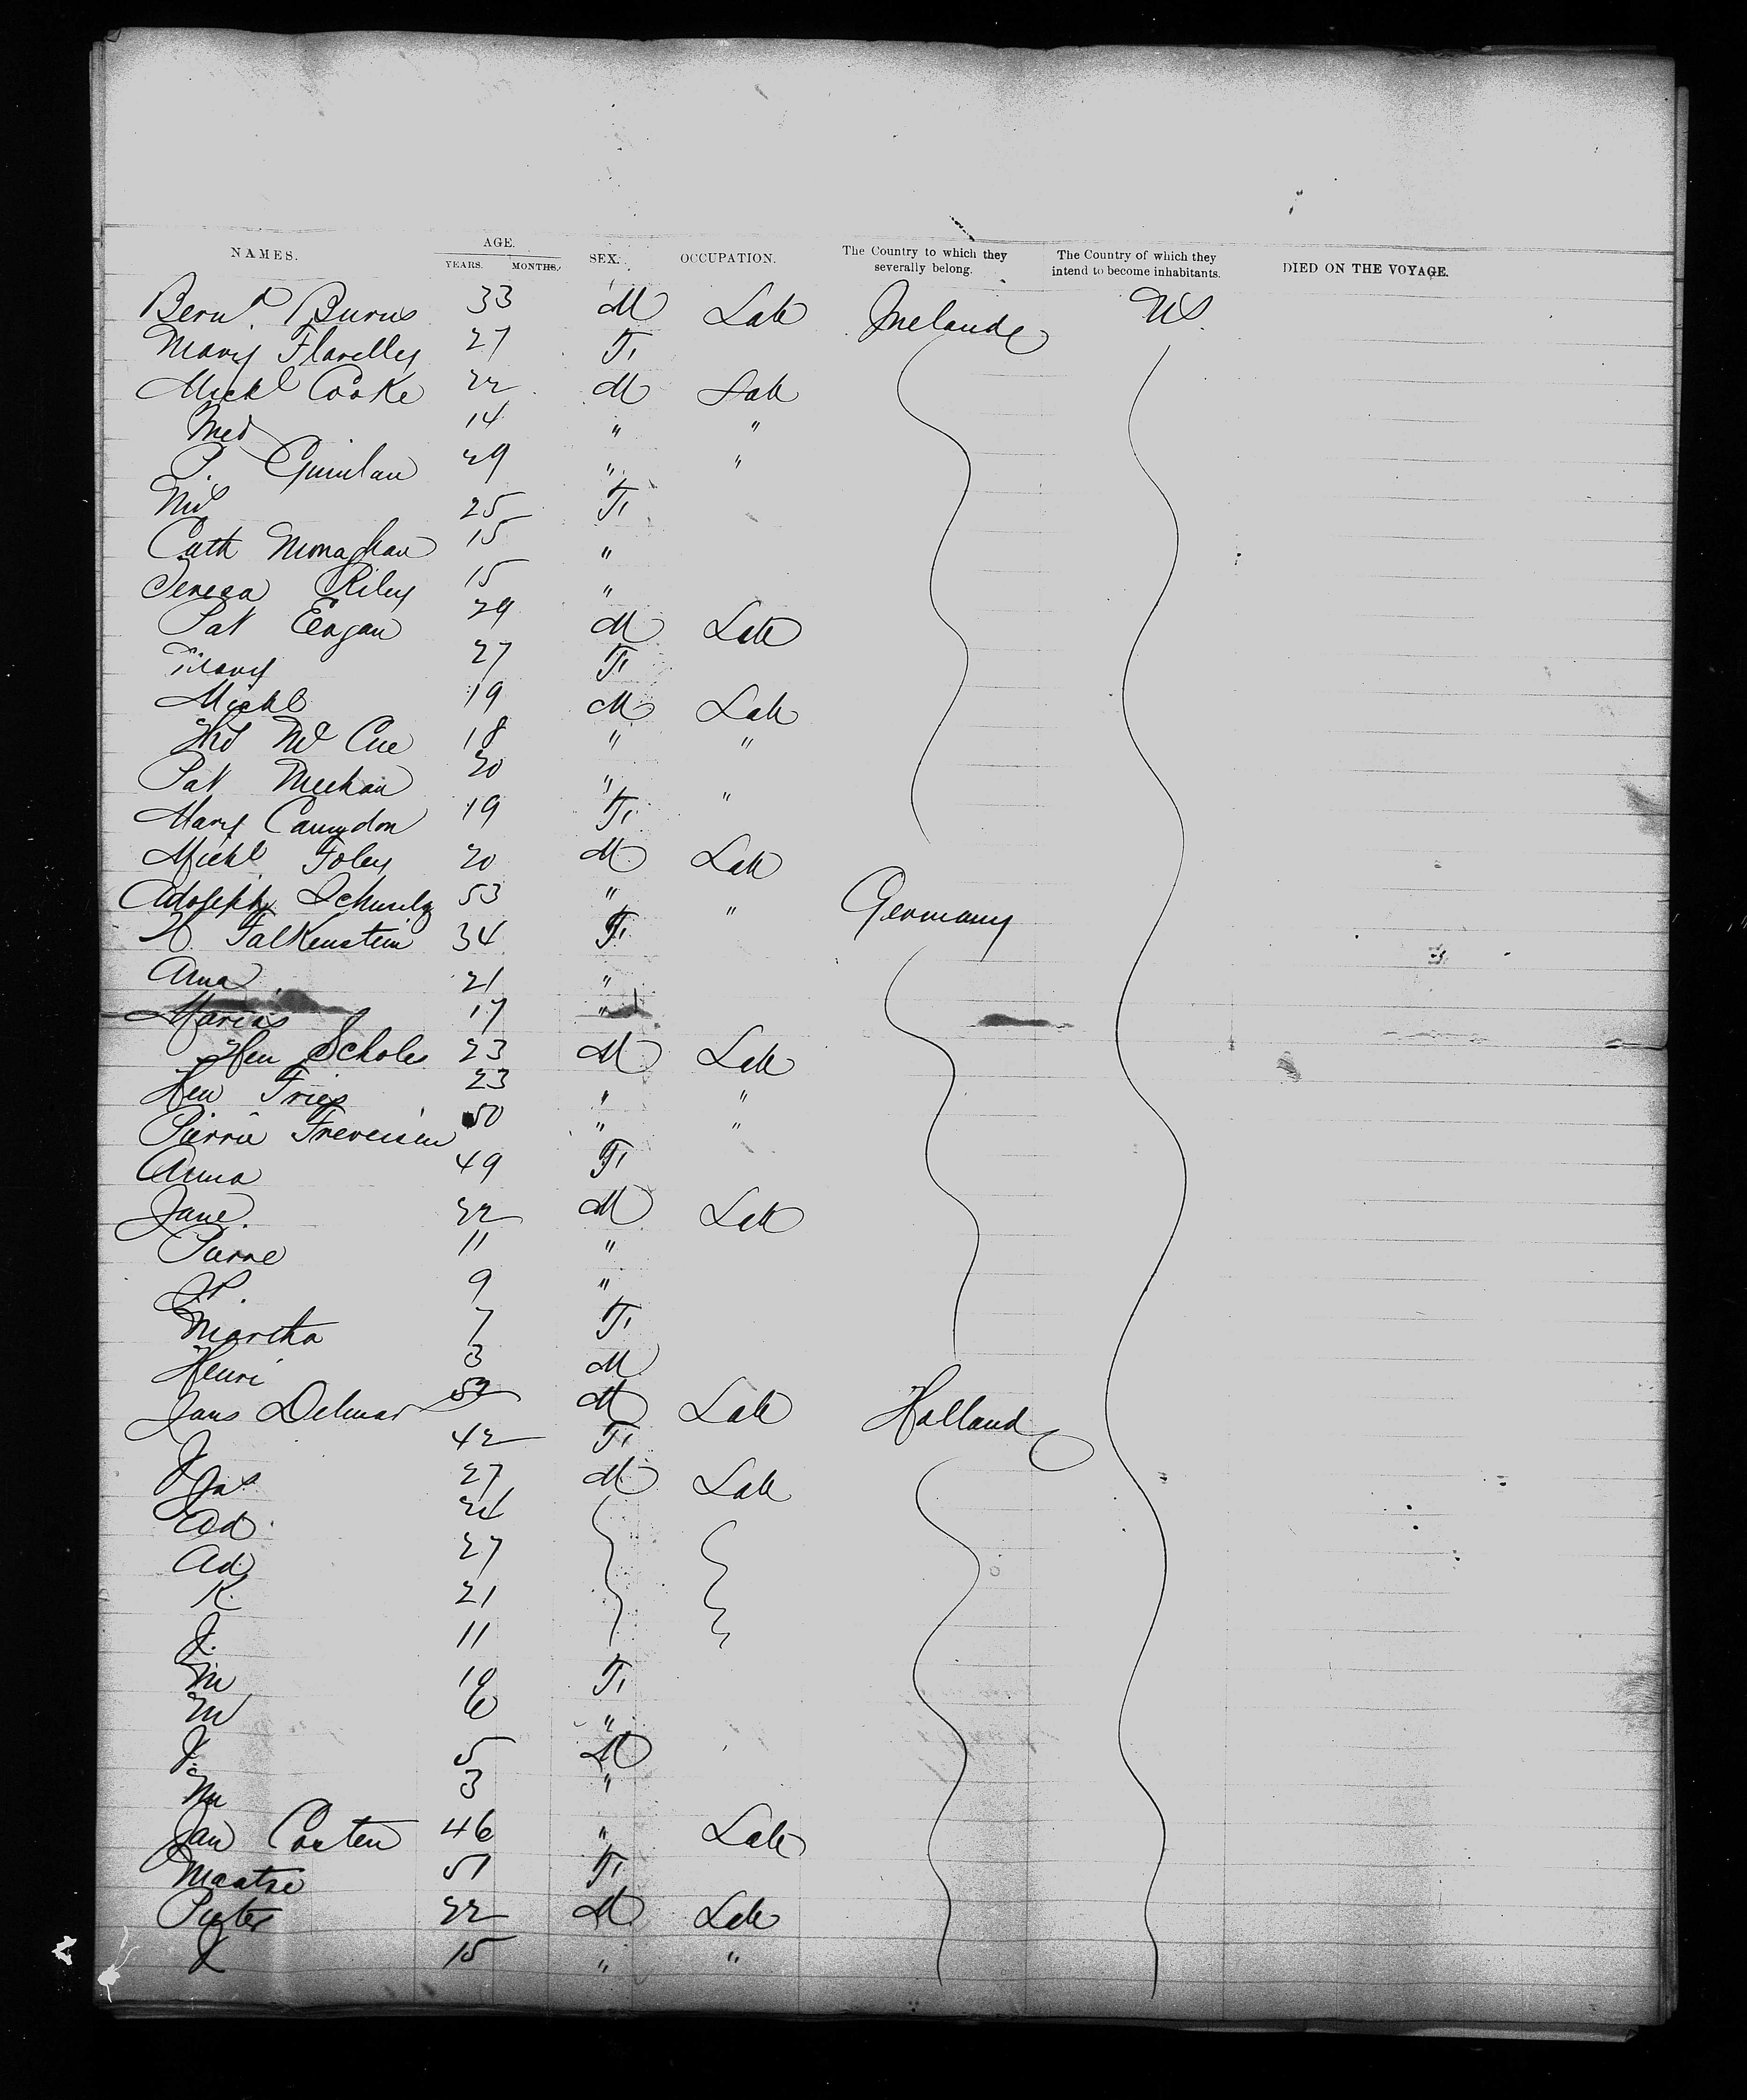 NAMES. AGE. YEARS. MONTHS. SEX. OCCUPATION. The Country to which they severally belong. The Country of which they intend to become inhabitants. DIED ON THE VOYAGE.
Bernd. Burns 33 M Lab Irelande US.
Mary Flavelly 27 F
Michl Cooke 22 M Lab
14 " "
P. Quinlan 29 " "
25 F
Cath Monaghan 15 "
Teresa Riley 15 "
Pat Eagan 29 M Lab
Mary 27 F
Michl 19 M Lab
Mc Cue 18 " "
Pat Meehan 20 " "
Mary 19 F
Michl Foley 20 M Lab
Adolph 53 " " Germany
A. Falkenstein 34 F
Anna 21 "
Marias 17 "
Hen Scholes 23 M Lab
Hen Fries 23 " "
Pierre 50 " "
Anna 49 F
Jane. 22 M Lab
Pierre 11 "
9 "
Martha 7 F
Henri 3 M
Jans Delmar 52 M Lab Holland
J 42 F
Jas 27 M Lab
Ad 24
Ad 27
K. 21
J. 11
M F
M 6 "
J. 5 M
3 "
Jan Corten 46 " Lab
Maatse 51 F
Pieter 22 M Lab
15 " "